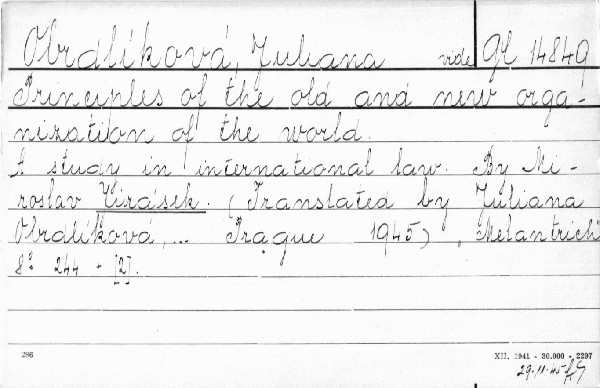 Obrdlíková, Juliana vide Gl 14849
Principles of the old and new orga-
nization of the world.
A study in international law. By Mi-
roslav Virásek. (Translated by Juliana
Obrdlíková,... Prague 1945) „Melantrich"
8° 244 + [2].
286
XII. 1941 - 30.000 - 2297
29.11.45